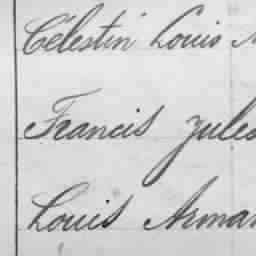 Célestin Louis
Francis Jules
Louis Arman